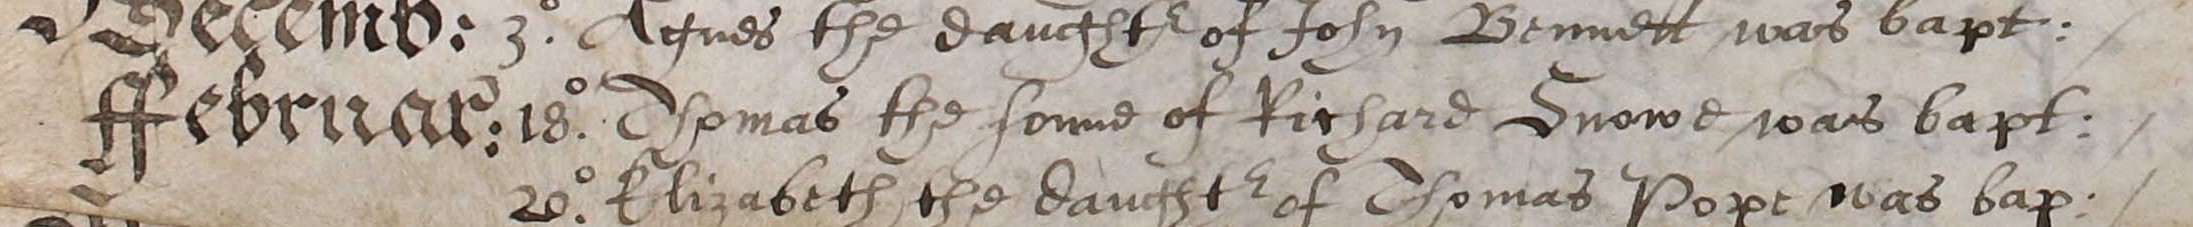 Decemb: 3°. Agnes the daught^r of John Bennett was bapt:
ffebruar: 18°. Thomas the sonne of Richard Snowe was bapt:
20°. Elizabeth the daught^r of Thomas Pope was bap: